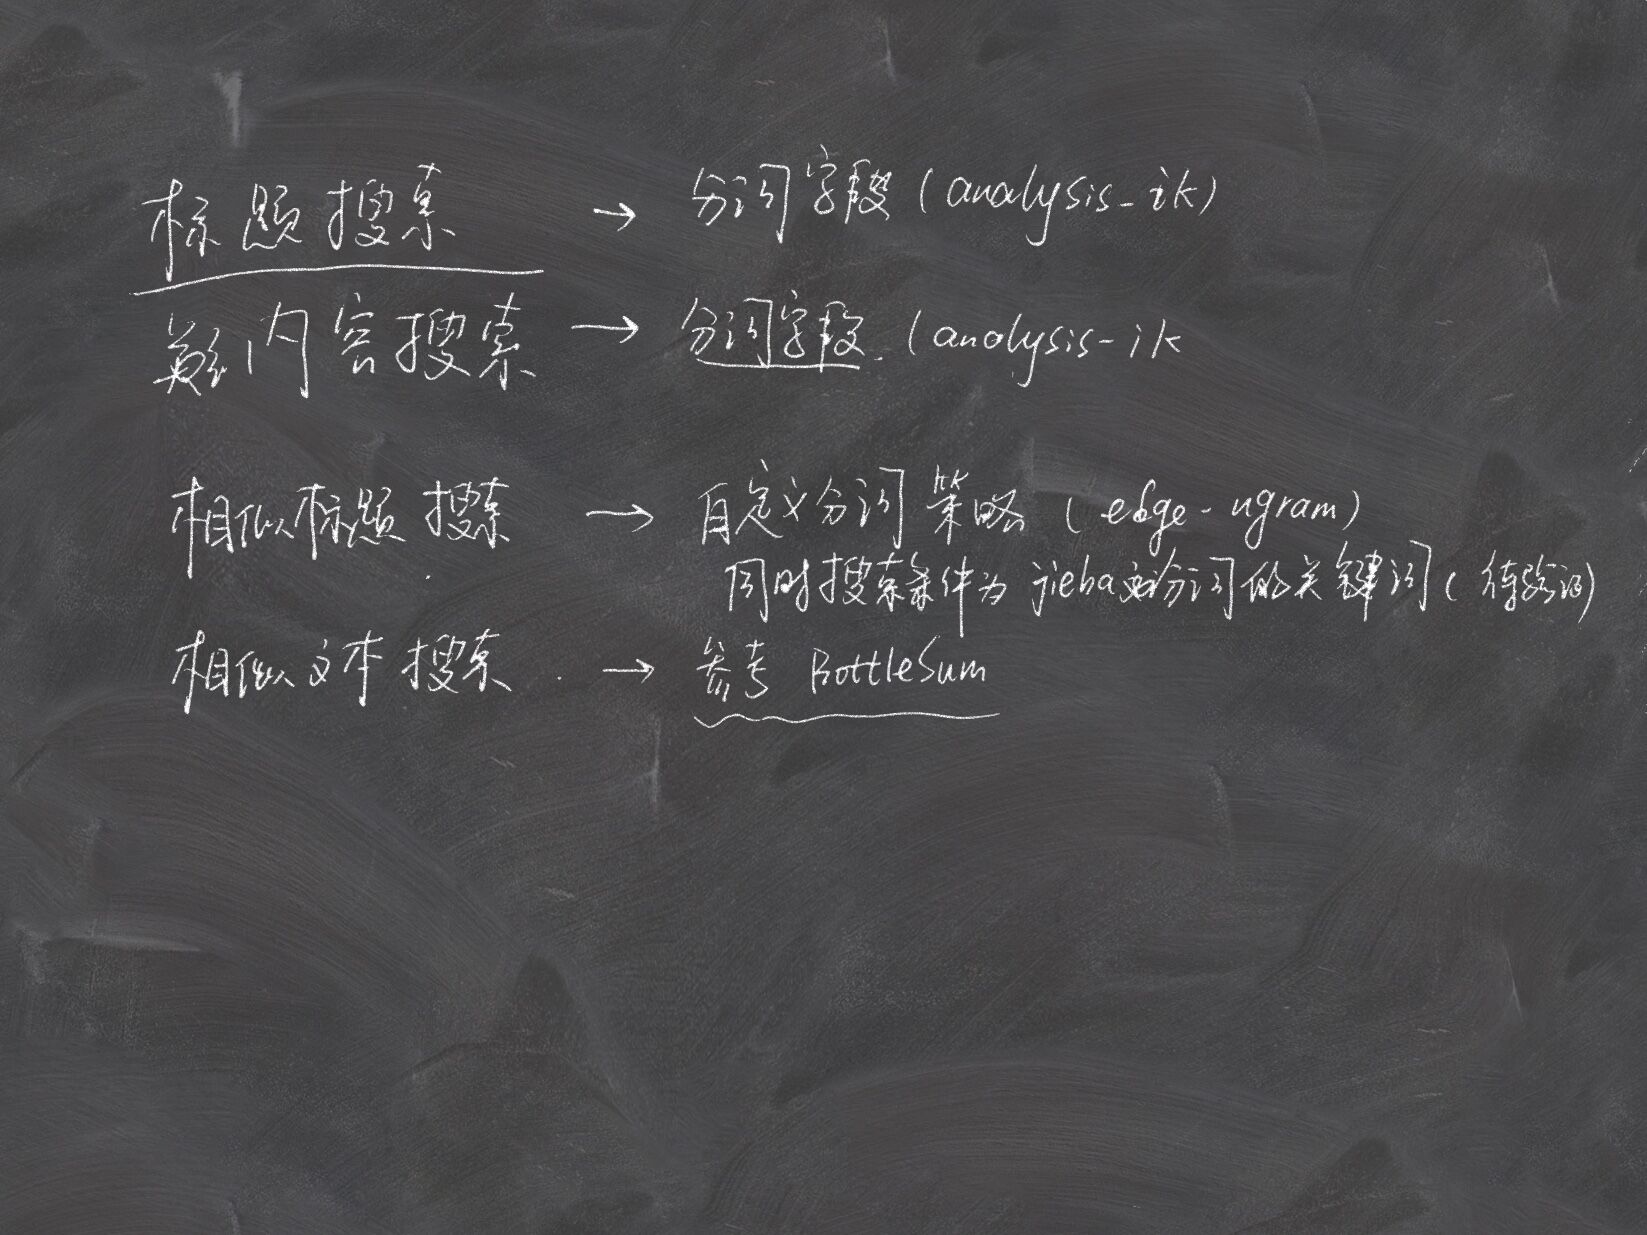 标题搜索 → 分词字段 (analysis-ik)
内容搜索 → 分词字段. (analysis-ik
相似标题搜索 → 自定义分词策略 (edge-ngram)
同时搜索条件为 jieba分词的关键词(待验证)
相似文本搜索 . → 参考 BottleSum